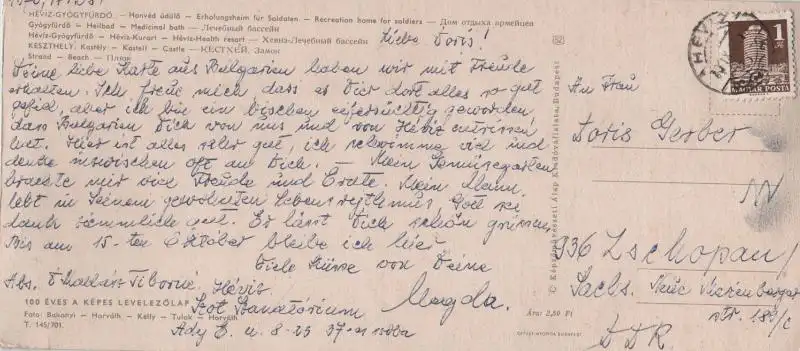 HÉVIZ-GYÓGYFÜRDŐ. - Honvéd üdülő - Erholungsheim für Soldaten. - Recreation home for soldiers - Дом отдыха армейцев
Gyógyfürdő - Heilbad - Medicinal bath - Лечебный бассейн
Hévíz-Gyógyfürdő - Hévíz-Kurort - Hévíz-Health resort - Хевиз-Лечебный бассейн
KESZTHELY. Kastély - Kastell - Castle - КЕСТХЕЙ. Замок
Strand - Beach - Пляж
Liebe Doris!
Deine liebe Karte aus Bulgarien haben wir mit Freude
erhalten. Ich freue mich dass es Dir dort alles so gut
gefid, aber ich bin ein bischen eifersüchtig geworden
dass Bulgarien Dich von uns und von Héviz
het. Hier ist alles sehr gut, ich schwimme viel und
denke inzwischen oft an Dich. Mein Gemüsegarten
brachte mir viel Freude und Erdte. Mein Mann
lebt in Seinem gewohnten Lebensrythmus, Gott sei
dank ziemmlich gut. Er lässt Dich schön grüssen.
Bis am 15-ten Október bleibe ich hier
Viele Küsse von Deine
Magda.
Abs. Tiborné. Hévíz
Szot Szanatórium
Ady E. u. 8-25 szoba
100 ÉVES A KÉPES LEVELEZŐLAP
Foto: Bakonyi - Horváth - Kelly - Tulok - Horváth
T. 145/701.
52
© Képzőművészeti Alap Kiadóvállalata, Budapest
Ára: 2,50 Ft
OFFSET-NYOMDA BUDAPEST
HÉVÍZ
1 Ft
MAGYAR POSTA
An Frau
Doris Gerber
936 Zschopau/
Sachs. Neue
str. 189/c
DDR